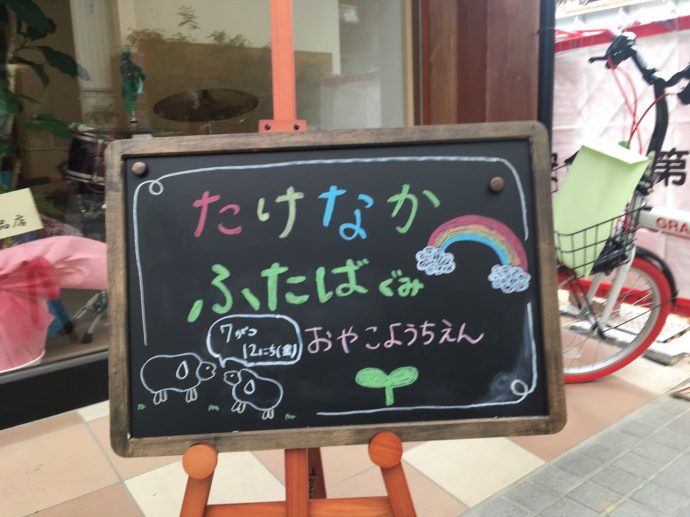 たけなか
ふたばぐみ
7がつ
12にち(金)
おやこようちえん
品店
第
GRA